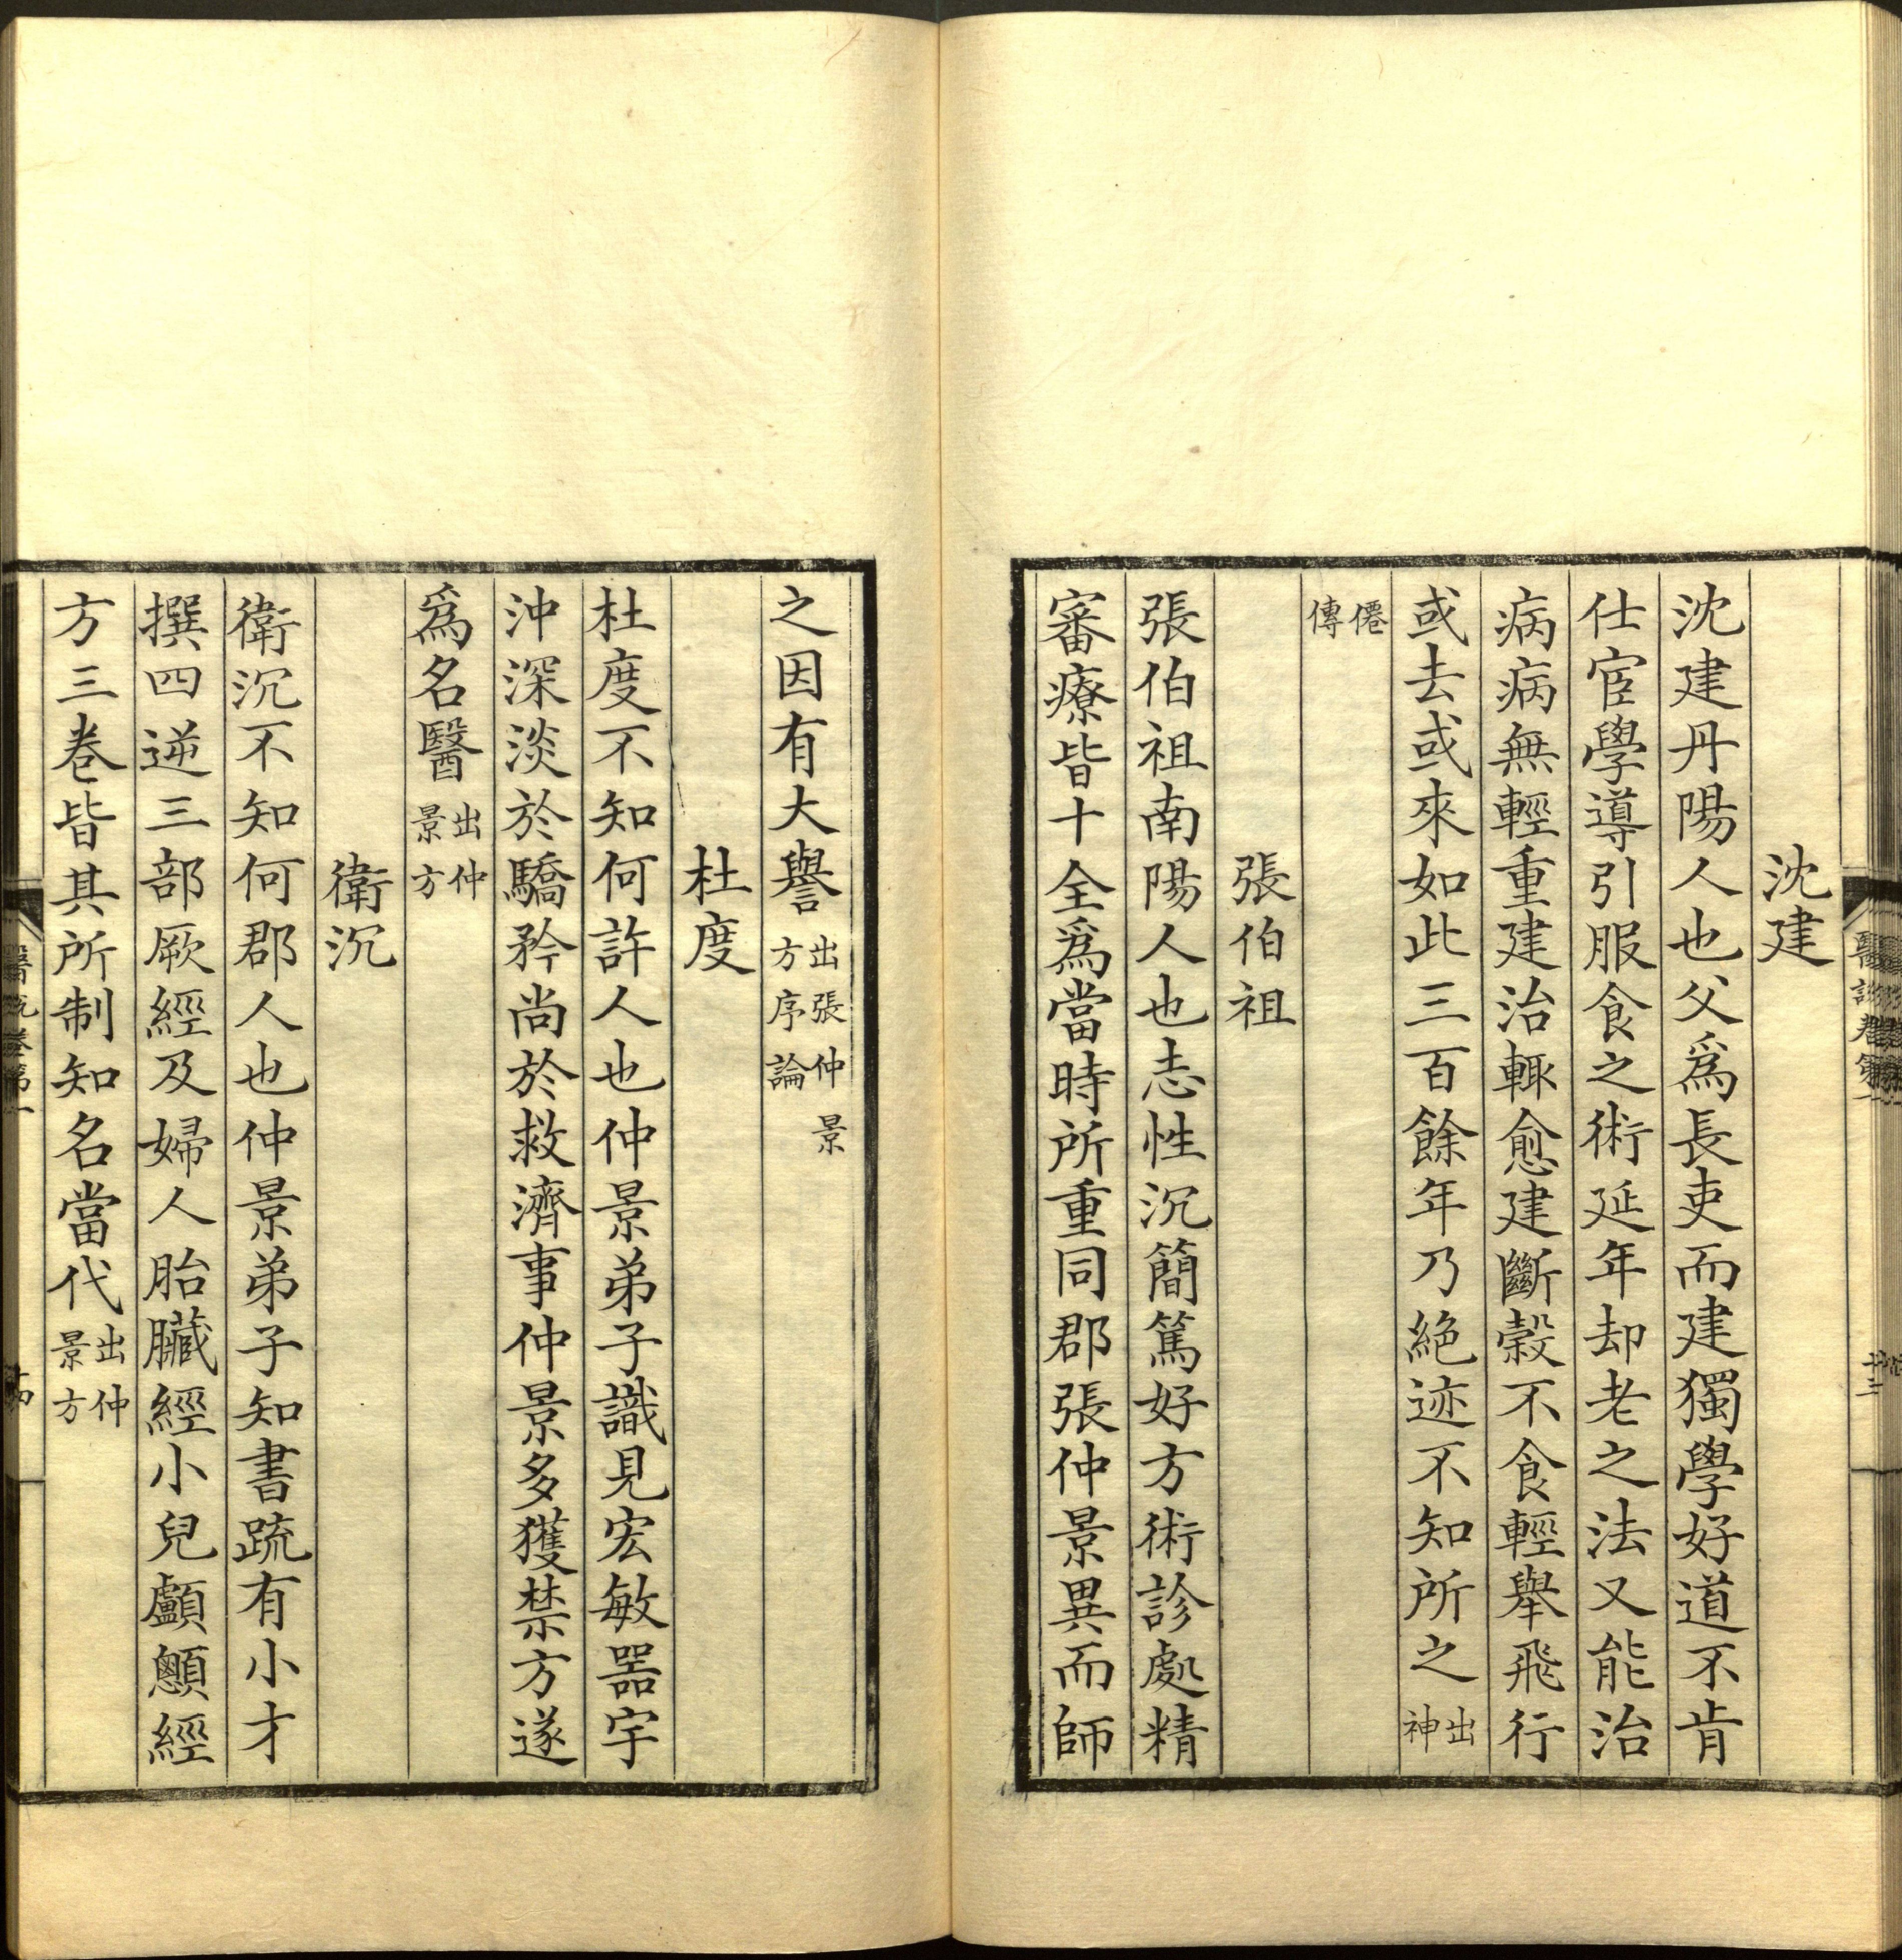 沈建
沈建丹陽人也父爲長吏而建獨學好道不肯
仕宦學導引服食之術延年却老之法又能治
病病無輕重建治輒愈建斷穀不食輕舉飛行
或去或來如此三百餘年乃絶迹不知所之出神
僊傳
張伯祖
張伯祖南陽人也志性沉簡篤好方術診處精
審療皆十全爲當時所重同郡張仲景異而師
之因有大譽出張仲景方序論
杜度
杜度不知何許人也仲景弟子識見宏敏噐宇
沖深淡於驕矜尚於救濟事仲景多獲禁方遂
爲名醫出仲景方
衛沉
衛沉不知何郡人也仲景弟子知書疏有小才
撰四逆三部厥經及婦人胎臟經小兒顱顖經
方三卷皆其所制知名當代出仲景方
醫説卷第一
十四